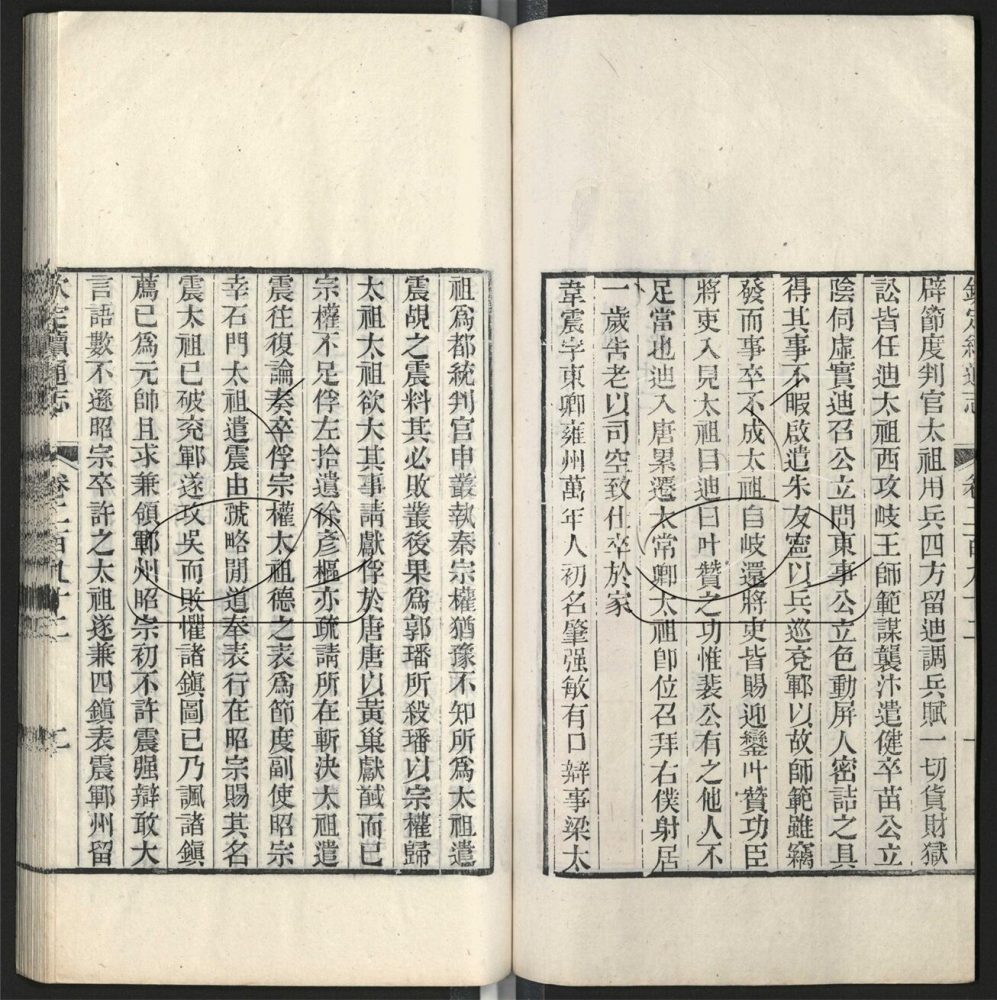 欽定續通志 卷二百九十二 一
辟節度判官太祖用兵四方留迪調兵賦一切貨財獄
訟皆任迪太祖西攻岐王師範謀襲汴遣健卒苗公立
陰伺虛實迪召公立問東事公立色動屏人密詰之具
得其事不暇啟遣朱友寧以兵巡兗鄆以故師範雖竊
發而事卒不成太祖自岐還將吏皆賜迎鑾叶贊功臣
將吏入見太祖目迪曰叶贊之功惟裴公有之他人不
足當也迪入唐累遷太常卿太祖卽位召拜右僕射居
一歲告老以司空致仕卒於家
韋震字東卿雍州萬年人初名肇强敏有口辯事梁太
祖爲都統判官申叢執秦宗權猶豫不知所爲太祖遣
震覘之震料其必敗叢後果爲郭璠所殺璠以宗權歸
太祖太祖欲大其事請獻俘於唐唐以黃巢獻馘而已
宗權不足俘左拾遺徐彥樞亦疏請所在斬決太祖遣
震往復論奏卒俘宗權太祖德之表爲節度副使昭宗
幸石門太祖遣震由虢略閒道奉表行在昭宗賜其名
震太祖已破兗鄆遂攻吳而敗懼諸鎭圖已乃諷諸鎭
薦已爲元帥且求兼領鄆州昭宗初不許震强辯敢大
言語數不遜昭宗卒許之太祖遂兼四鎭表震鄆州留
欽定續通志 卷二百九十二